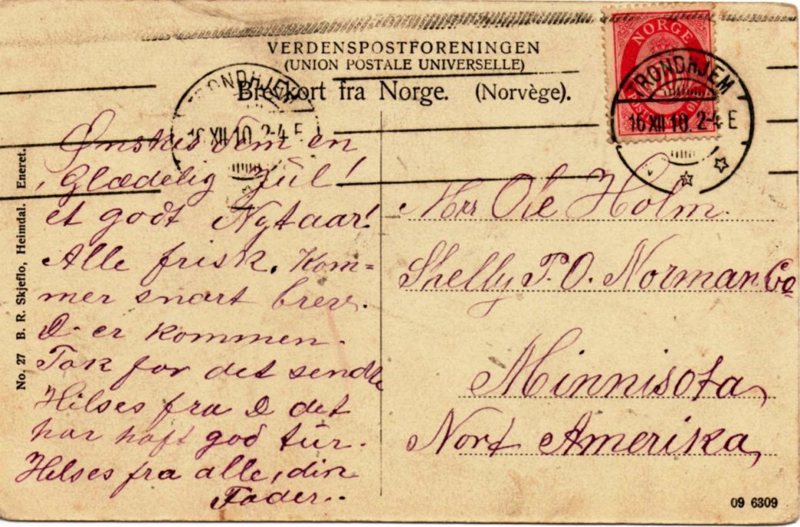 VERDENSPOSTFORENINGEN
(UNION POSTALE UNIVERSELLE)
Brevkort fra Norge. (Norvège).
NORGE
TRONDHJEM
16 XII 10. 2-4 E
TRONDHJEM
16 XII 10. 2-4 E
Ønskes Dem en
Glædelig Jul!
et godt Nytaar!
Alle frisk. Kom-
mer snart brev.
D. er kommen.
Tak for det sendte
Hilses fra D det
har haft god tur.
Helses fra alle, din
Fader..
Mrs Ole Holm.
Shelly P.O. Norman Co
Minnisota,
Nort Amerika,
No. 27 B. R. Skjeflo, Heimdal. Eneret.
09 6309